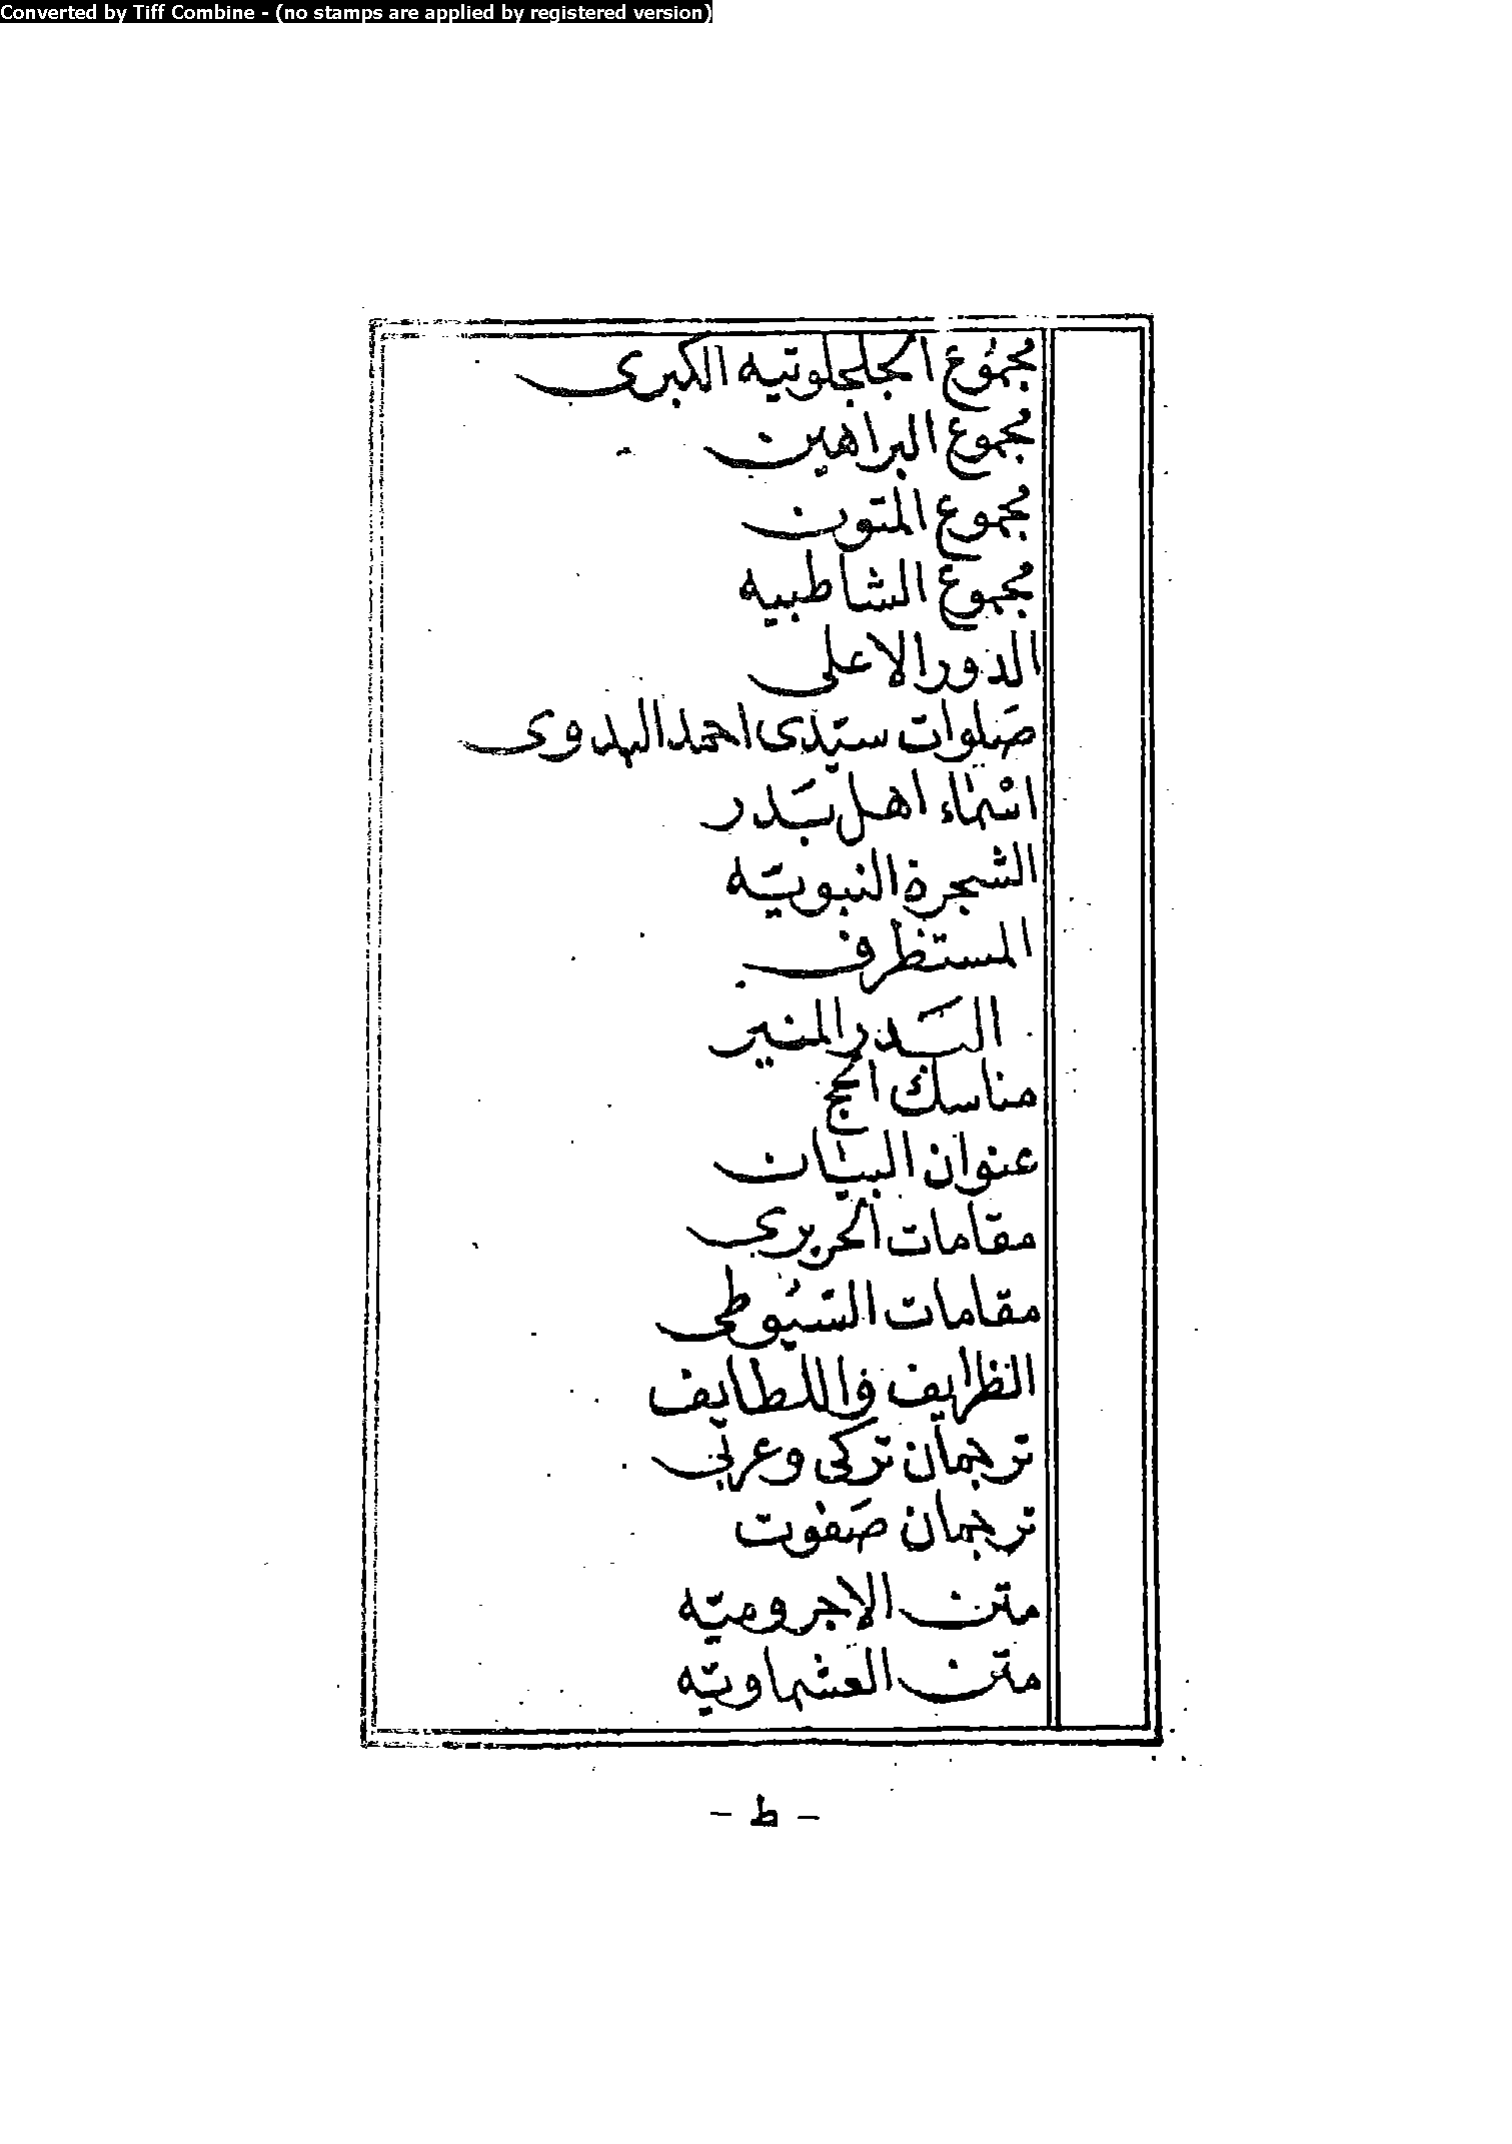 Converted by Tiff Combine - (no stamps are applied by registered version)
مجموع الجلجلوتيه الكبرى
مجموع البراهين
مجموع المتون
مجموع الشاطبيه
الدور الاعلى
صَلوات سيّدى احمد البدوى
اسْمٰاء اهل بَدر
الشجرة النبويّه
المستظرف
البَدر المنير
مناسك الحج
عنوان البيَان
مقامات الحريري
مقامات السّيُوطى
الظرايف واللطايف
ترجمان تركى وعربي
ترجمان صَفوت
متن الاجروميّه
متن العشماويّه
- ط -